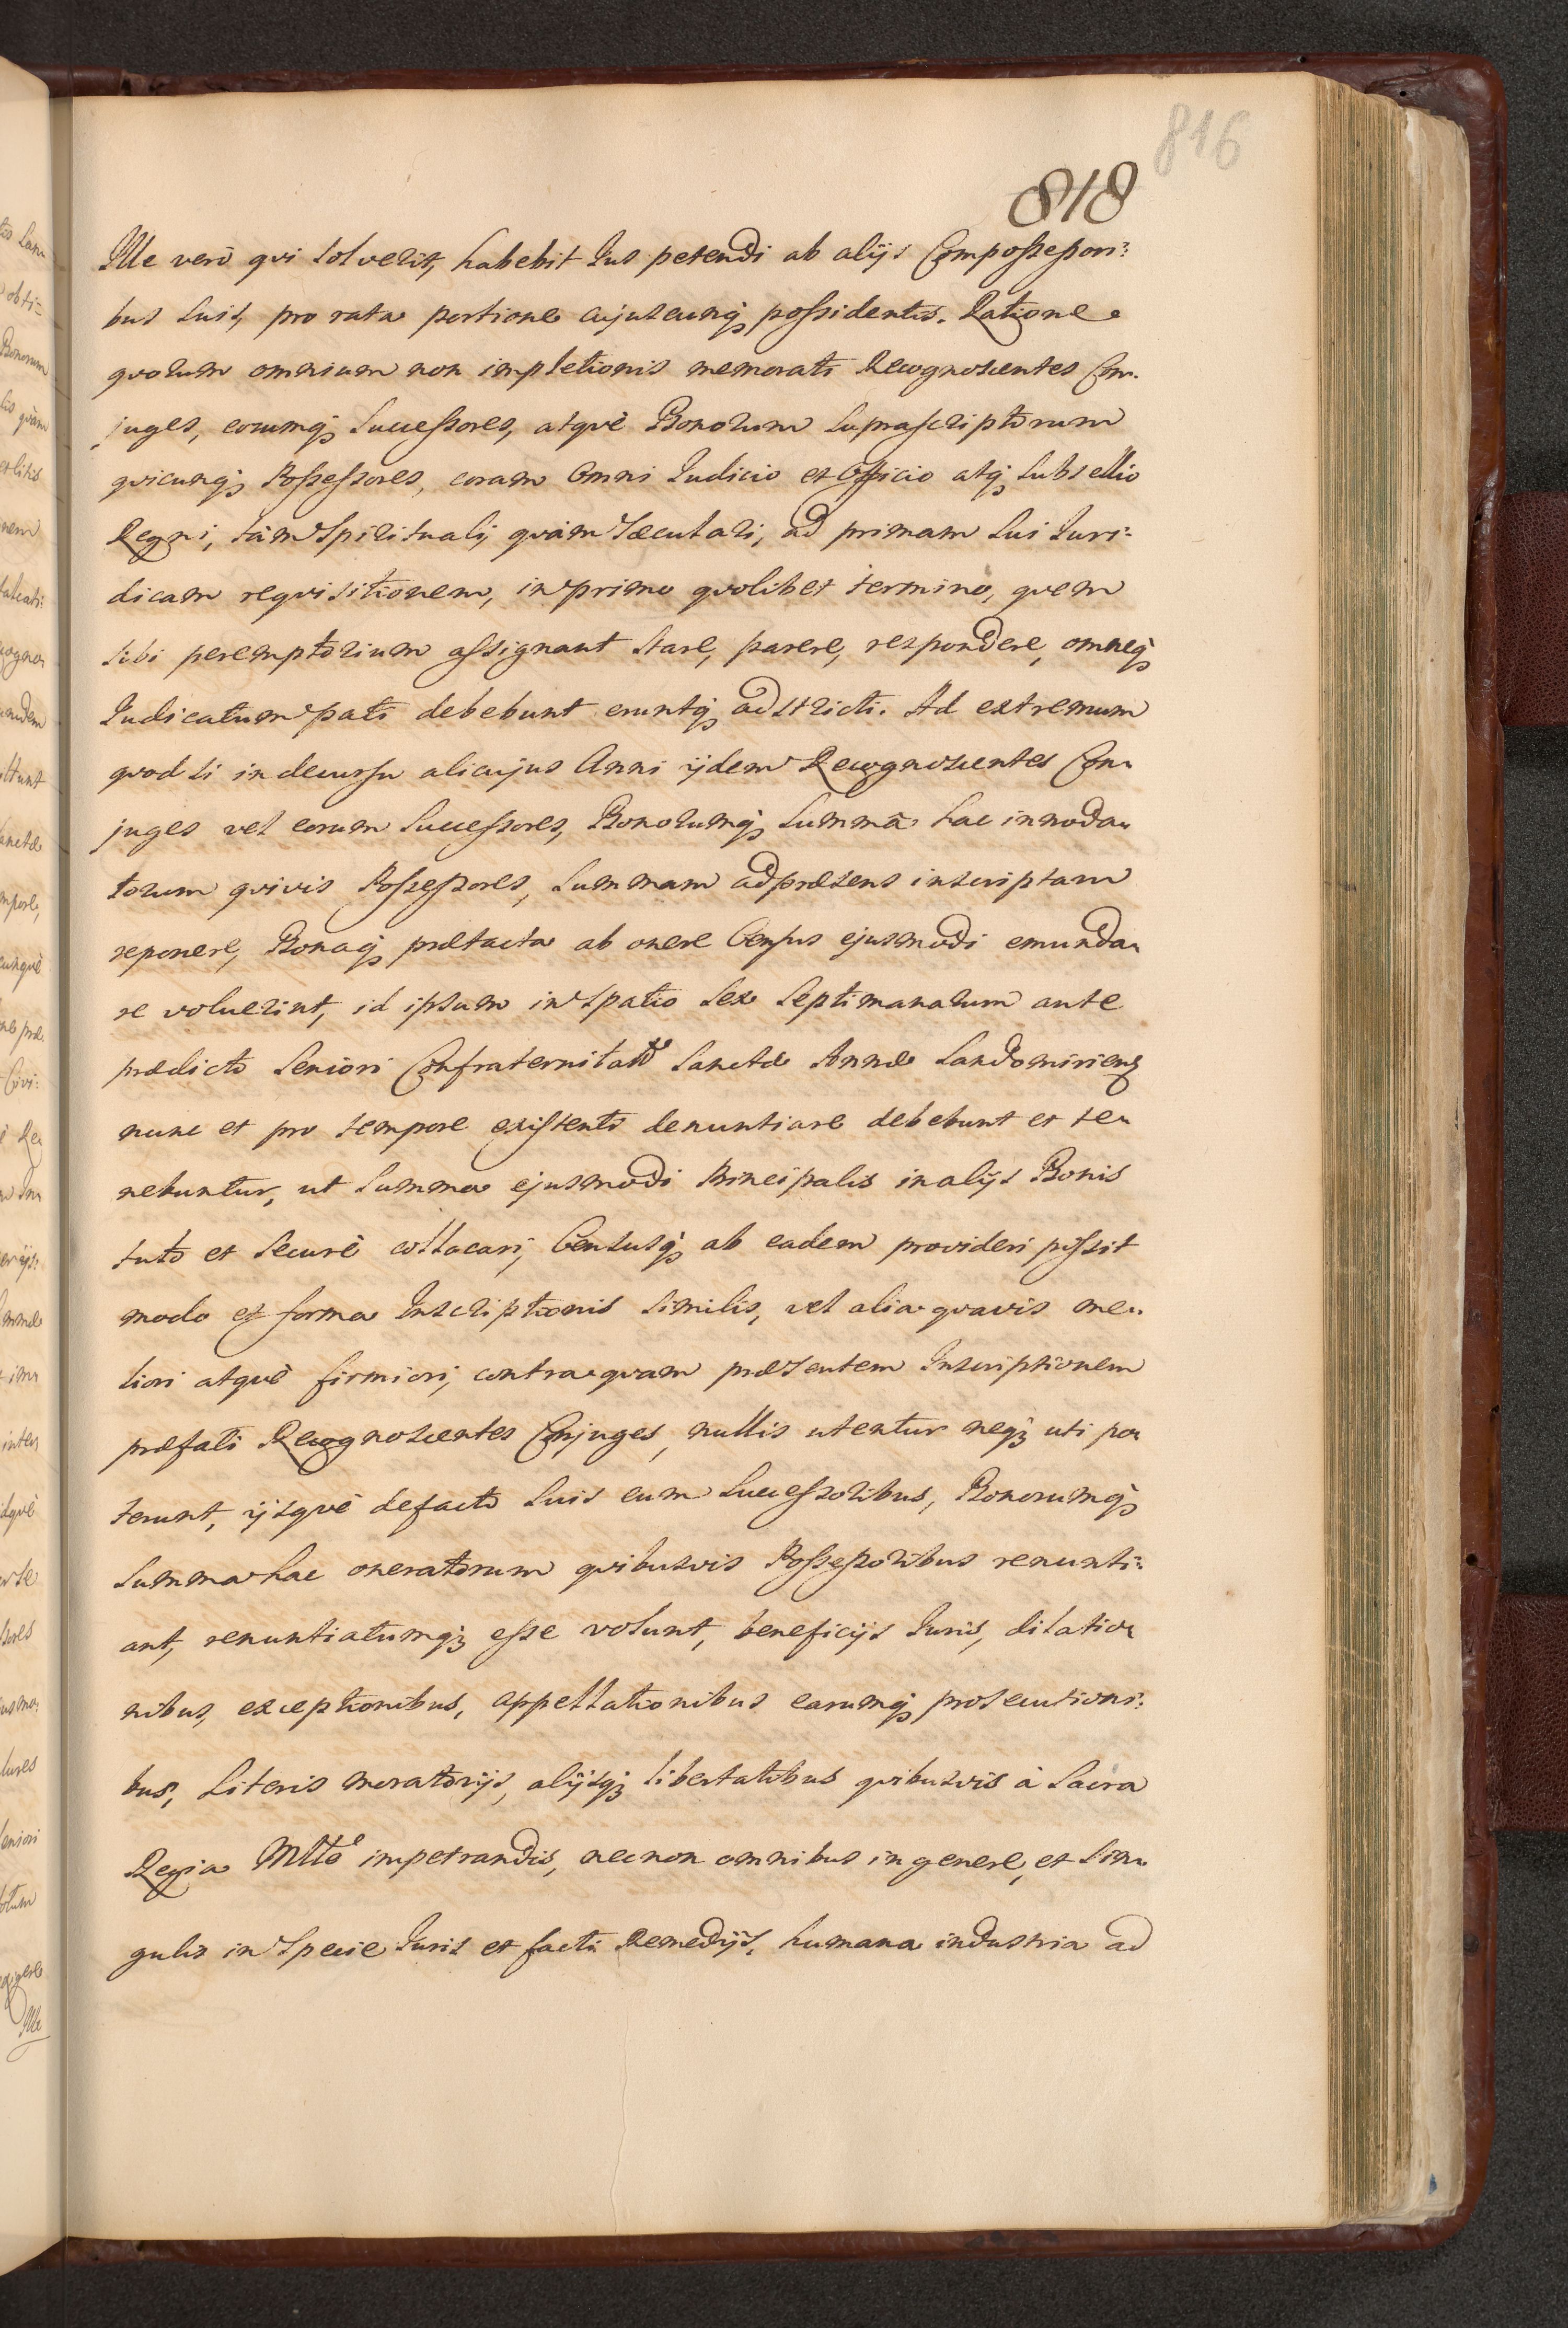 816
818
Ille verò qvi solverit, habebit Jus petendi ab alijs Compossessori:
bus suis, pro rata portione cujuscunq; possidentis. Ratione
qvorum omnium non impletionis memorati Recognoscentes Con-
juges, eorumq; Successores, atqvè Bonorum suprascriptorum
qvicunq; Possessores, coram Omni Judicio et Officio atq; Subsellio
Regni, tàm Spirituali, qvàm Sæculari, ad primam sui Juri-
dicam reqvisitionem, in primo qvolibet termino, qvem
sibi peremptorium assignant stare, parere, respondere, omneq;
Judicatum pati debebunt eruntq; adstricti. Ad extremum
qvod si in decursu alicujus Anni ijdem Recognoscentes Con-
juges vel eorum Successores, Bonorumq; Summâ hac innoda-
torum qvivis Possessores, Summam ad præsens inscriptam
reponere, Bonaq; prætacta ab onere Census ejusmodi emunda-
re voluerint, id ipsum in Spatio Sex Septimanarum ante
prædicto Seniori Confraternitatis Sanctæ Annæ Sandomiriens
nunc et pro tempore existenti denuntiare debebunt et te-
nebuntur, ut Summa ejusmodi Principalis in alijs Bonis
tuto et Securè collocari, Censusq; ab eadem provideri possit
modo et forma Inscriptionis similis, vel alia qvavis me-
liori atqvè firmiori, contra qvam præsentem Inscriptionem
præfati Recognoscentes Conjuges, nullis utentur neq; uti po-
terunt, ijsqvè de facto suis cum Successoribus, Bonorumq;
Summa hac oneratorum qvibusvis Possessoribus renunti:
ant, renuntiatumq; esse volunt, beneficijs Juris, dilatio-
nibus, exceptionibus, appellationibus earumq; prosecutioni:
bus, Literis moratorijs, alijsq; libertatibus qvibusvis à Sacra
Regia Mtte impetrandis, nec non omnibus in genere, et sin-
gulis in Specie Juris et facti Remedijs, humana industria ad